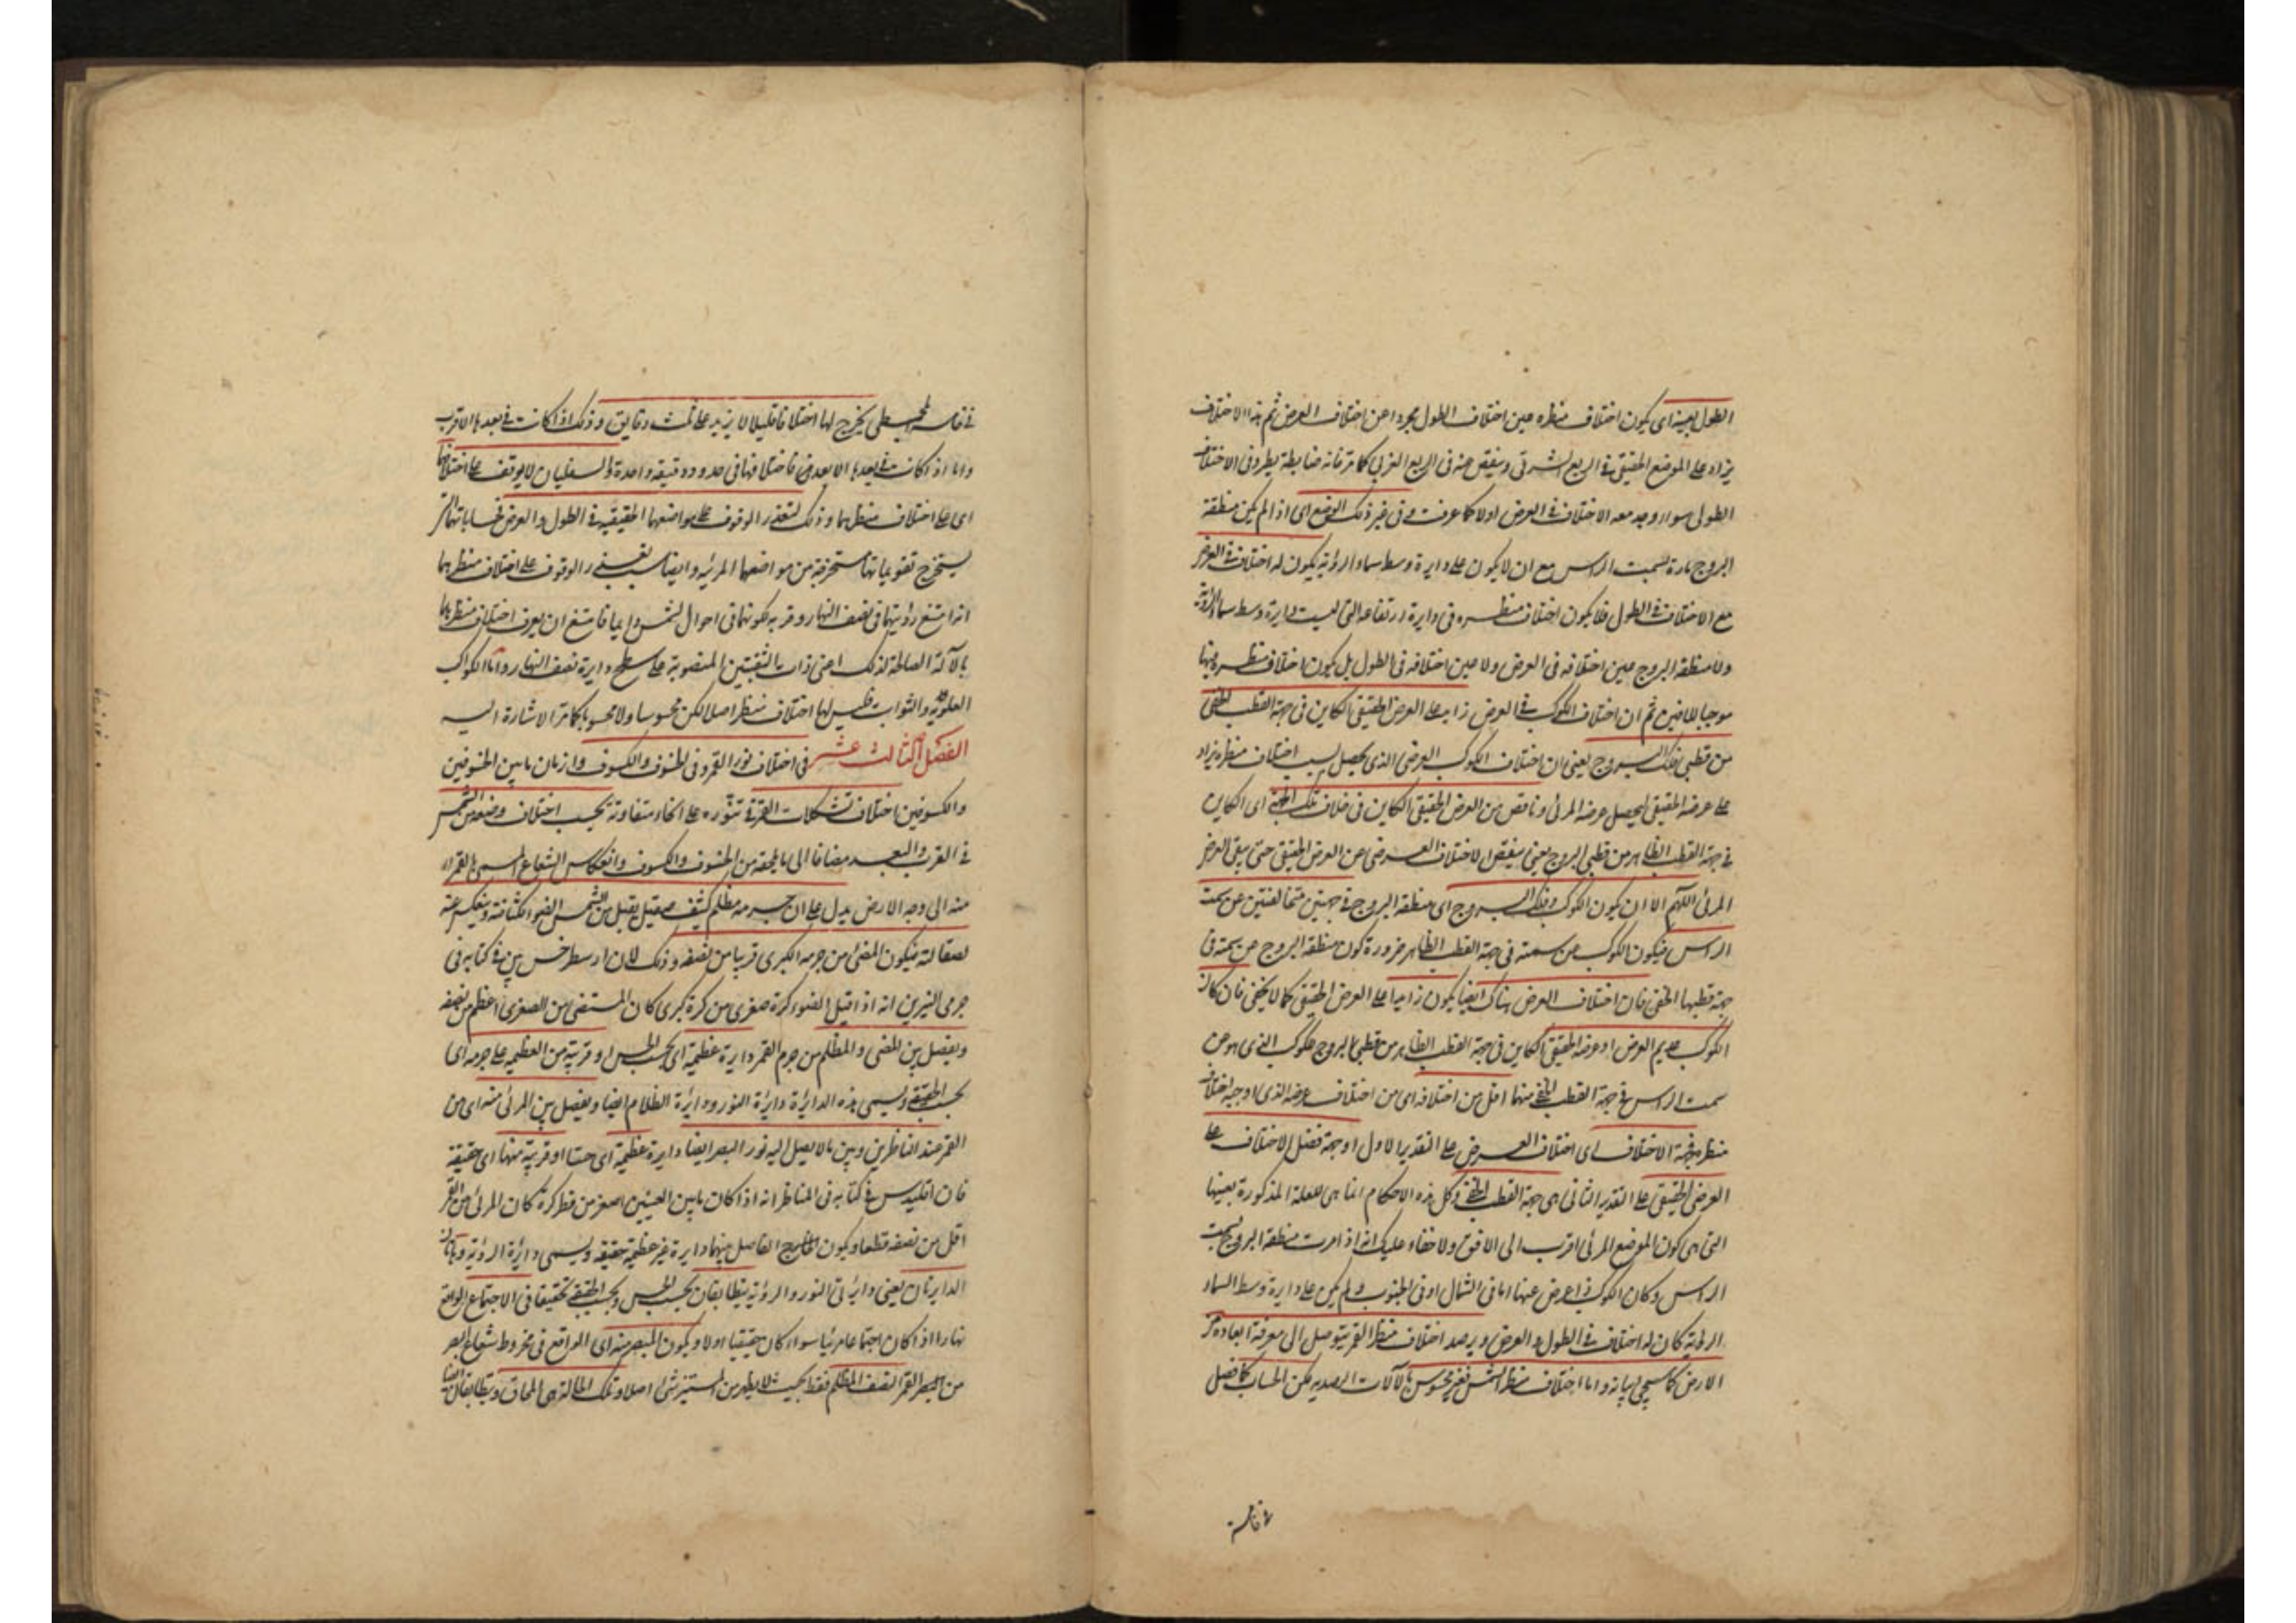 الطول بعينه اى يكون اختلاف منظره عين اختلاف الطول مجردا عن اختلاف العرض ثم هذا الاختلاف
يزاد على الموضع الحقيقى فى الربع الشرقى وينقص منه فى الربع الغربى كما مر فانه ضابطة يطرد فى الاختلاف
الطولى سواء وجد معه الاختلاف فى العرض اولا كما عرفت وفى غير ذلك الوضع اى اذا لم يكن منطقة
البروج مارة بسمت الراس مع ان لا يكون على دايرة وسط سماء الرؤية يكون له اختلاف فى العرض
مع الاختلاف فى الطول فلا يكون اختلاف منظره فى دايرة ارتفاعه التى ليست دايرة وسط سماء الرؤية
ولا منطقة البروج عين اختلافه فى العرض ولا عين اختلافه فى الطول بل يكون اختلاف منظره فيها
موجبا للامرين ثم ان اختلاف الكوكب فى العرض زايد على العرض الحقيقى الكاين فى جهة القطب الخفى
من قطبى فلك البروج يعنى ان اختلاف الكوكب العرضى الذى يحصل بسبب اختلاف منظره يزاد
على عرضه الحقيقى ليحصل عرضه المرئى وناقص من العرض الحقيقى الكاين فى خلاف تلك الجهة اى الكاين
فى جهة القطب الظاهر من قطبى البروج يعنى ينقص الاختلاف العرضى عن العرض الحقيقى حتى يبقى العرض
المرئى اللهم الا ان يكون الكوكب وفلك البروج اى منطقة البروج فى جهتين متخالفتين عن سمت
الراس فيكون الكوكب عن سمته فى جهة القطب الظاهر ضرورة كون منطقة البروج عن سمته فى
جهة قطبها الخفى فان اختلاف العرض هناك ايضا يكون زايدا على العرض الحقيقى كما لا يخفى فان كان
الكوكب عديم العرض او عرضه الحقيقى الكاين فى جهة القطب الظاهر من قطبى البروج ككوكب الذى هو عن
سمت الراس فى جهة القطب الخفى منهما اقل من اختلافه اى من اختلاف عرضه الذى اوجبه اختلاف
منظره فجهة الاختلاف اى اختلاف العرض على التقدير الاول او جهة فضل الاختلاف على
العرض الحقيقى على التقدير الثانى هى جهة القطب الخفى وكل هذه الاحكام انما هى للعلة المذكورة بعينها
التى هى كون الموضع المرئى اقرب الى الافق ولا خفاء عليك انه اذا مرت منطقة البروج بسمت
الراس وكان الكوكب ذا عرض عنها اما فى الشمال او فى الجنوب ولم يكن على دايرة وسط السماء
الرؤية كان له اختلاف فى الطول والعرض وبرصد اختلاف منظر القمر يتوصل الى معرفة ابعاده من
الارض كما سيجى بيانه واما اختلاف منظر الشمس فغير محسوس بالآلات الرصدية لكن الحساب كما فصل
فى خامسة
فى خامسة المجسطى يخرج لها اختلافا قليلا لا يزيد على ثلث دقايق وذلك اذا كانت فى بعدها الاقرب
واما اذ كانت فى بعدها الابعد فاختلافها فى حدود دقيقة واحدة والسفليان لا يوقف على اختلافهما
اى على اختلاف منظرهما وذلك لتعذر الوقوف على مواضعهما الحقيقية فى الطول والعرض
يستخرج تقويماتها مستخرجة من مواضعها المرئيه وايضا سبب الوقوف على اختلاف منظرهما
انه امتنع رؤيتهما فى نصف النهار وقربه لكونهما فى احوال الشمس دايما فامتنع ان يعرف اختلاف منظرهما
بالآلة الصالحة لذلك اعنى ذات الثقبتين المنصوبة على سطح دايرة نصف النهار واما الكواكب
العلوية والثوابت فليس لها اختلاف منظر اصلا لكن محسوسا ولا محسوبا كما مر الاشارة اليه
الفصل الثالث عشر فى اختلاف نور القمر وفى الخسوف والكسوف وازمان ما بين الخسوفين
والكسوفين اختلاف تشكلات القمر فى تنوره على انحاء متفاوتة بحسب اختلاف وضعه من الشمس
فى القرب والبعد مضافا الى ما يلحقه من الخسوف والكسوف وانعكاس الشعاع المسمى بالقمراء
منه الى وجه الارض يدل على ان جرمه مظلم كثيف صقيل يقبل من الشمس الضوء لكثافته وينعكس عنه
لصقالته فيكون المضئ من جرمه الكرى قريبا من نصفه وذلك لان ارسطرخس بين فى كتابه فى
جرمى النيرين انه اذا قبل الضوء كرة صغرى من كرة كبرى كان المستضئ من الصغرى اعظم من نصفه
ويفصل بين المضئ والمظلم من جرم القمر دايرة عظيمة اى بحسب الحس او قريبة من العظيمه على جرمه اى
بحسب الحقيقة ويسمى هذه الدائرة دائرة النور ودائرة الظلام ايضا ويفصل بين المرئى منه اى من
القمر عند الناظرين وبين ما لا يصل اليه نور البصر ايضا دايرة عظيمة اى حسا او قريبة منها اى حقيقة
فان اقليدس بين فى كتابه فى المناظر انه اذا كان ما بين العينين اصغر من قطر كرة كان المرئى من القمر
اقل من نصفه قطعا ويكون الفاصل بينهما دايرة غير عظيمة حقيقة ويسمى دائرة الرؤية وهاتان
الدايرتان يعنى دائرتى النور والرؤية يتطابقان بحسب الحس وبحسب الحقيقة تحقيقا فى الاجتماع الواقع
نهارا اذا كان اجتماعا مرئيا سواء كان حقيقيا اولا ويكون المبصر منه اى الواقع فى مخروط شعاع البصر
من القمر النصف المظلم فقط بحيث لا يظهر من المستنير شئ اصلا وتلك الحالة هى المحاق ويتطابقان ايضا